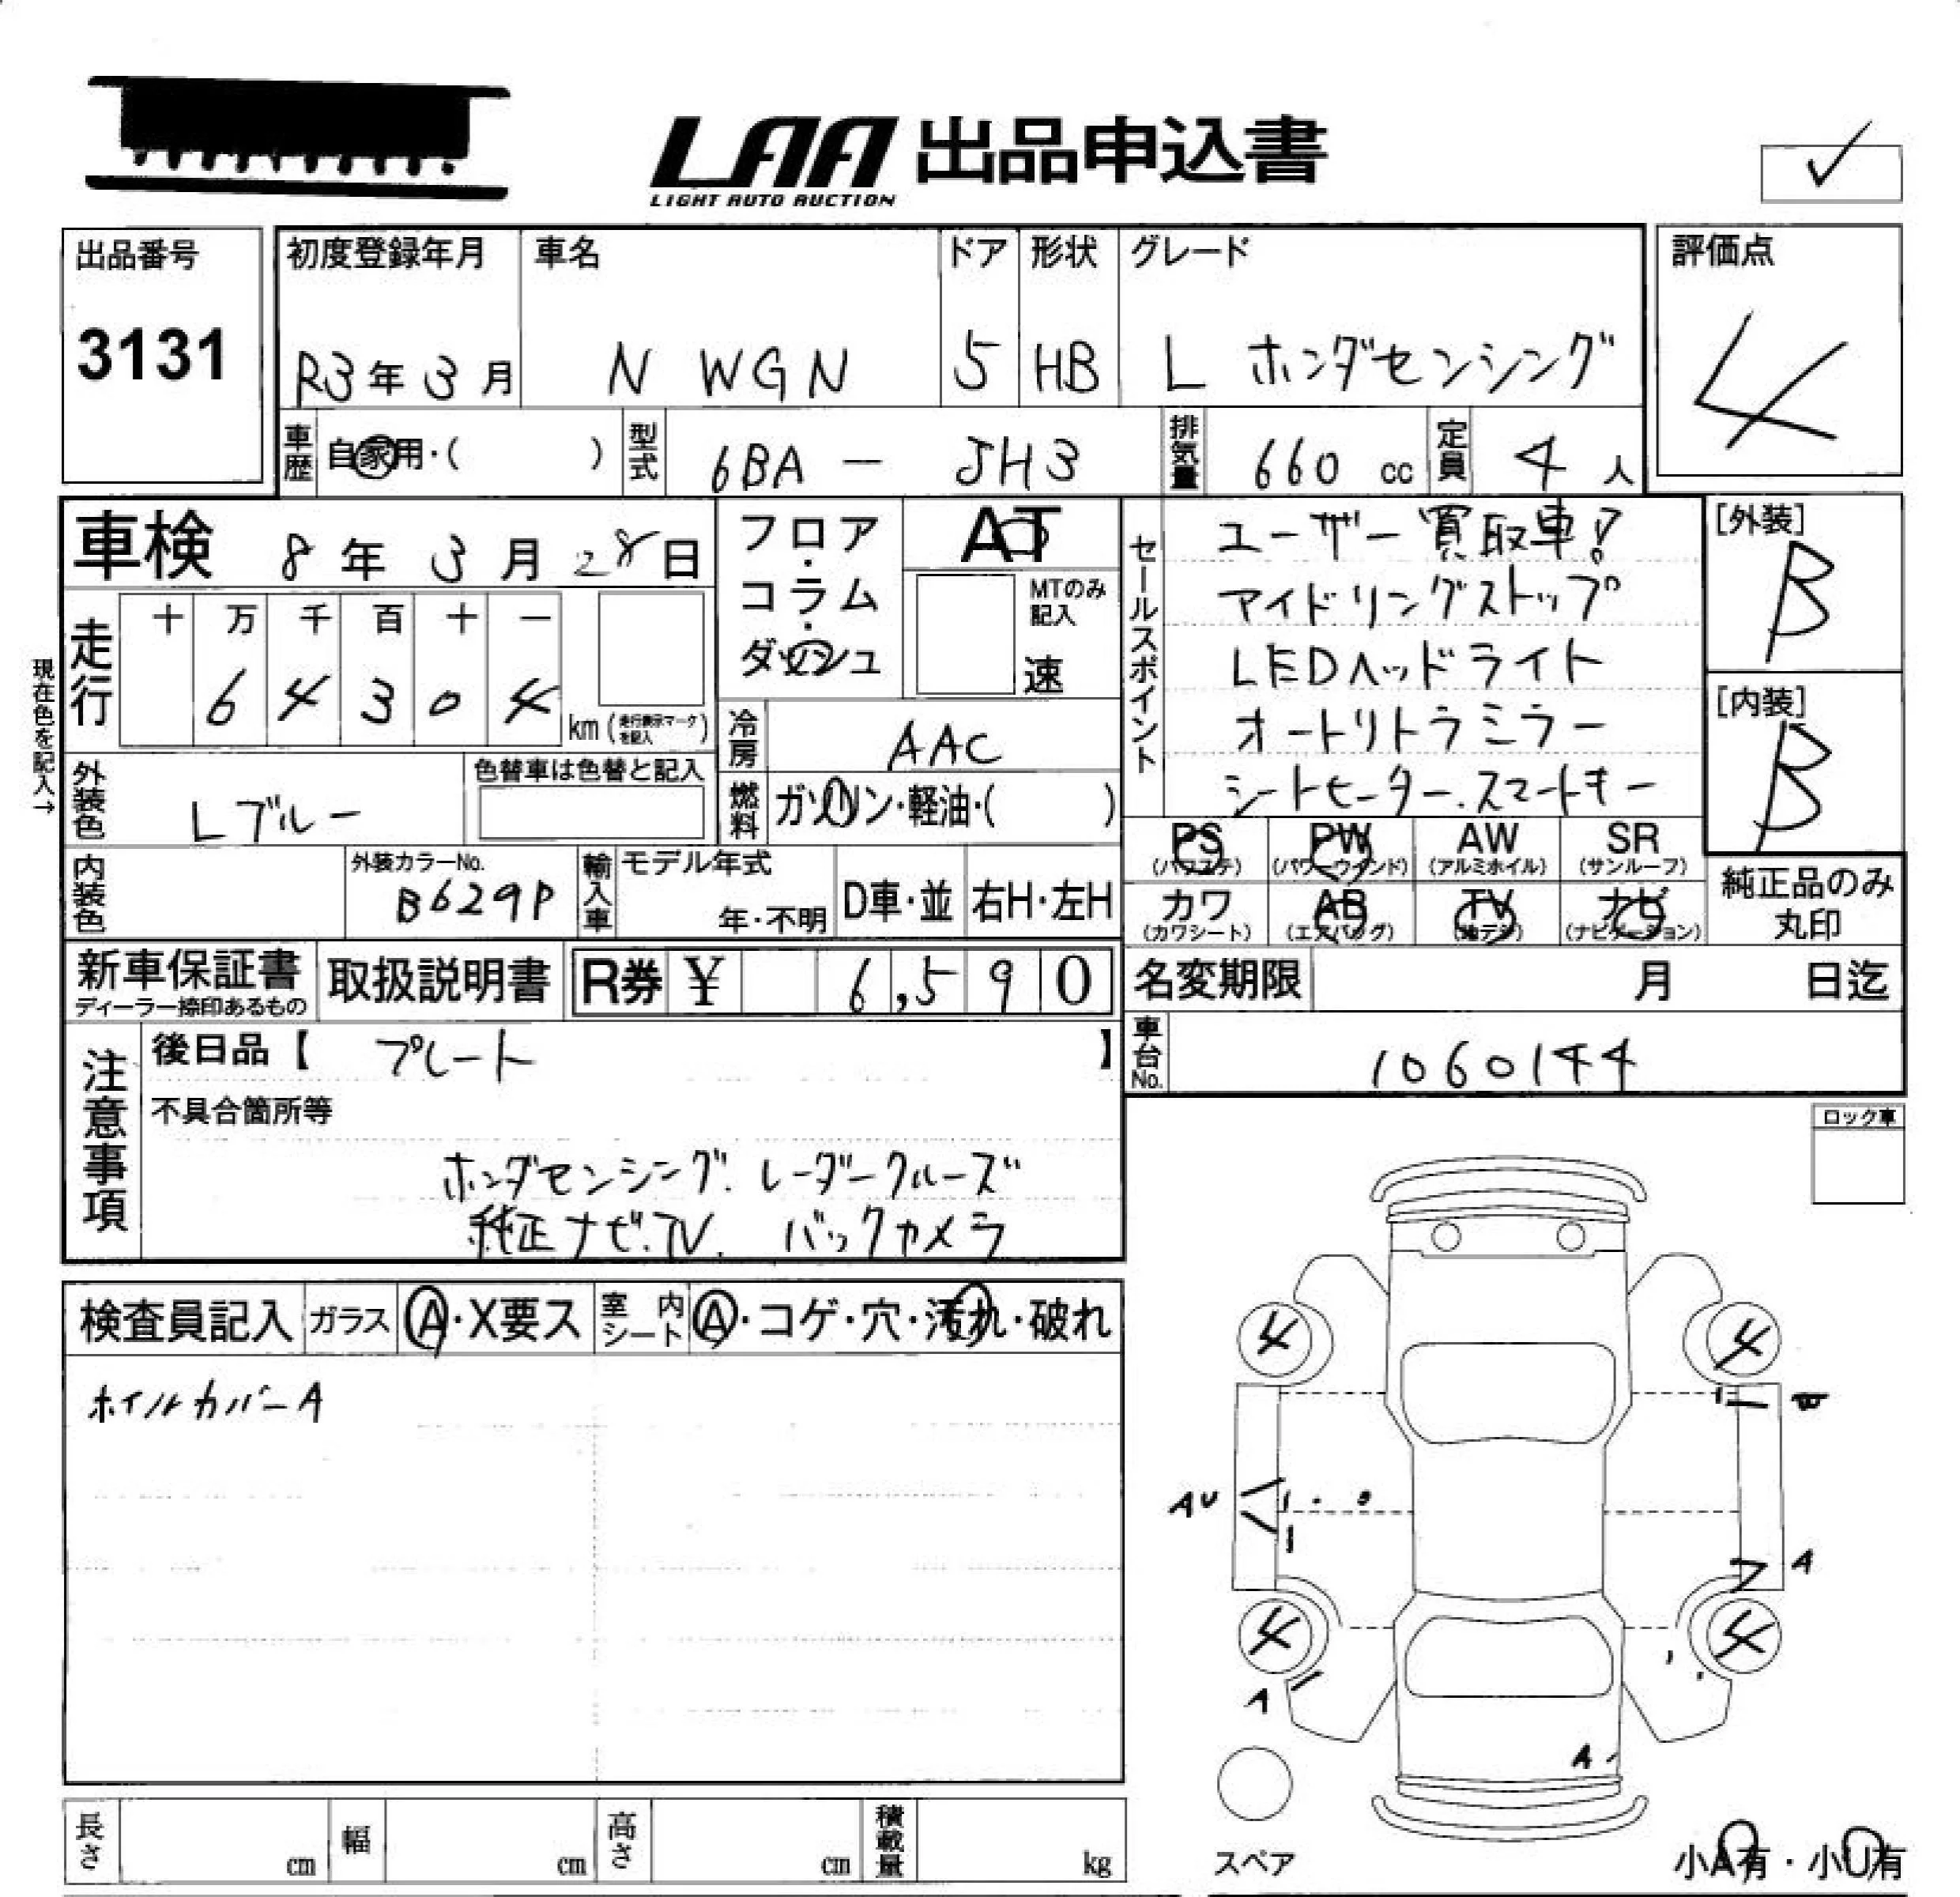 LAA 出品申込書
LIGHT AUTO AUCTION
✓
出品番号
3131
初度登録年月
R3年 3月
車名
N WGN
ドア
5
形状
HB
グレード
L ホンダセンシング
評価点
4
車歴
自家用・( )
型式
6BA - JH3
排気量
660 cc
定員
4人
車検 8年 3月 28日
フロア・コラム・ダッシュ
AT
MTのみ記入
速
セールスポイント
ユーザー買取車!
アイドリングストップ
LEDヘッドライト
オートリトラミラー
シートヒーター.スマートキー
[外装]
B
[内装]
B
現在色を記入→
走行
十 万 千 百 十 一
6 4 3 0 4
km (走行表示マークを記入)
冷房
AAC
外装色
Lブルー
色替車は色替と記入
燃料
ガソリン・軽油・( )
PS
(パワステ)
PW
(パワーウインド)
AW
(アルミホイル)
SR
(サンルーフ)
カワ
(カワシート)
AB
(エアバッグ)
TV
(地デジ)
ナビ
(ナビゲーション)
純正品のみ
丸印
内装色
外装カラーNo.
B629P
輸入車
モデル年式
年・不明
D車・並
右H・左H
新車保証書
ディーラー捺印あるもの
取扱説明書
R券 ¥ 6,590
名変期限 月 日迄
車台No.
1060144
注意事項
後日品【 プレート 】
不具合箇所等
ホンダセンシング. レーダークルーズ
純正ナビ.TV. バックカメラ
ロック車
検査員記入
ガラス
A・X要ス
室内シート
A・コゲ・穴・汚れ・破れ
ホイルカバーA
4
4
AU
A
4
4
A
A
スペア
小A有・小U有
長さ
cm
幅
cm
高さ
cm
積載量
kg